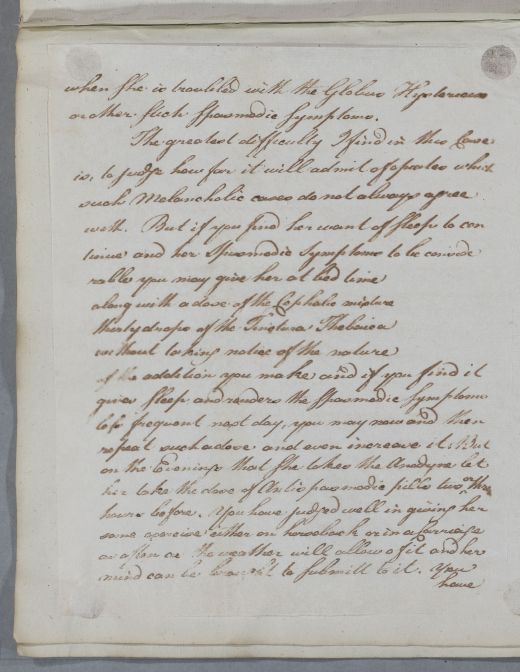 when She is troubled with the Globus Hystericus
or other Such Spasmodic Symptoms.
The greatest difficulty I find in this Case
is, to judge how far it will admit of opiates which
such Melancholic cases do not always agree
with. But if you find her want of Sleep to con
tinue and her Spasmodic Symptoms to be conside
rable you may give her at bed time
along with a dose of the Cephalic mixture
thirty drops of the Tinctura Thebaica
without taking notice of the nature
of the addition you make and if you find it
gives Sleep and renders the Spasmodic Symptoms
less frequent next day, you may now and then
repeat such a dose and even increase it. But
on the Evenings that She takes the Anodyne let
her take the dose of Antispasmodic pills two or three
hours before. You have judged well in giving her
some exercise either on horseback or in a Carriage
as often as the weather will allow of it and her
mind can be brought to Submitt to it. You
have